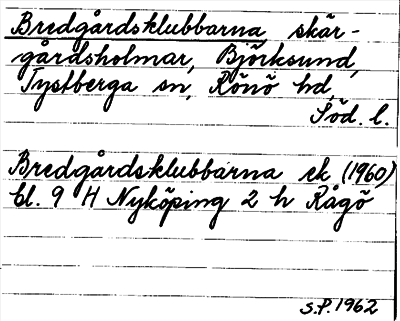 Bredgårdsklubbarna, skär-
gårdsholmar, Björksund,
Tystberga sn, Rönö hd,
Söd. l.
Bredgårdsklubbarna ek (1960)
bl. 9 H Nyköping 2 h Rågö
S.P. 1962